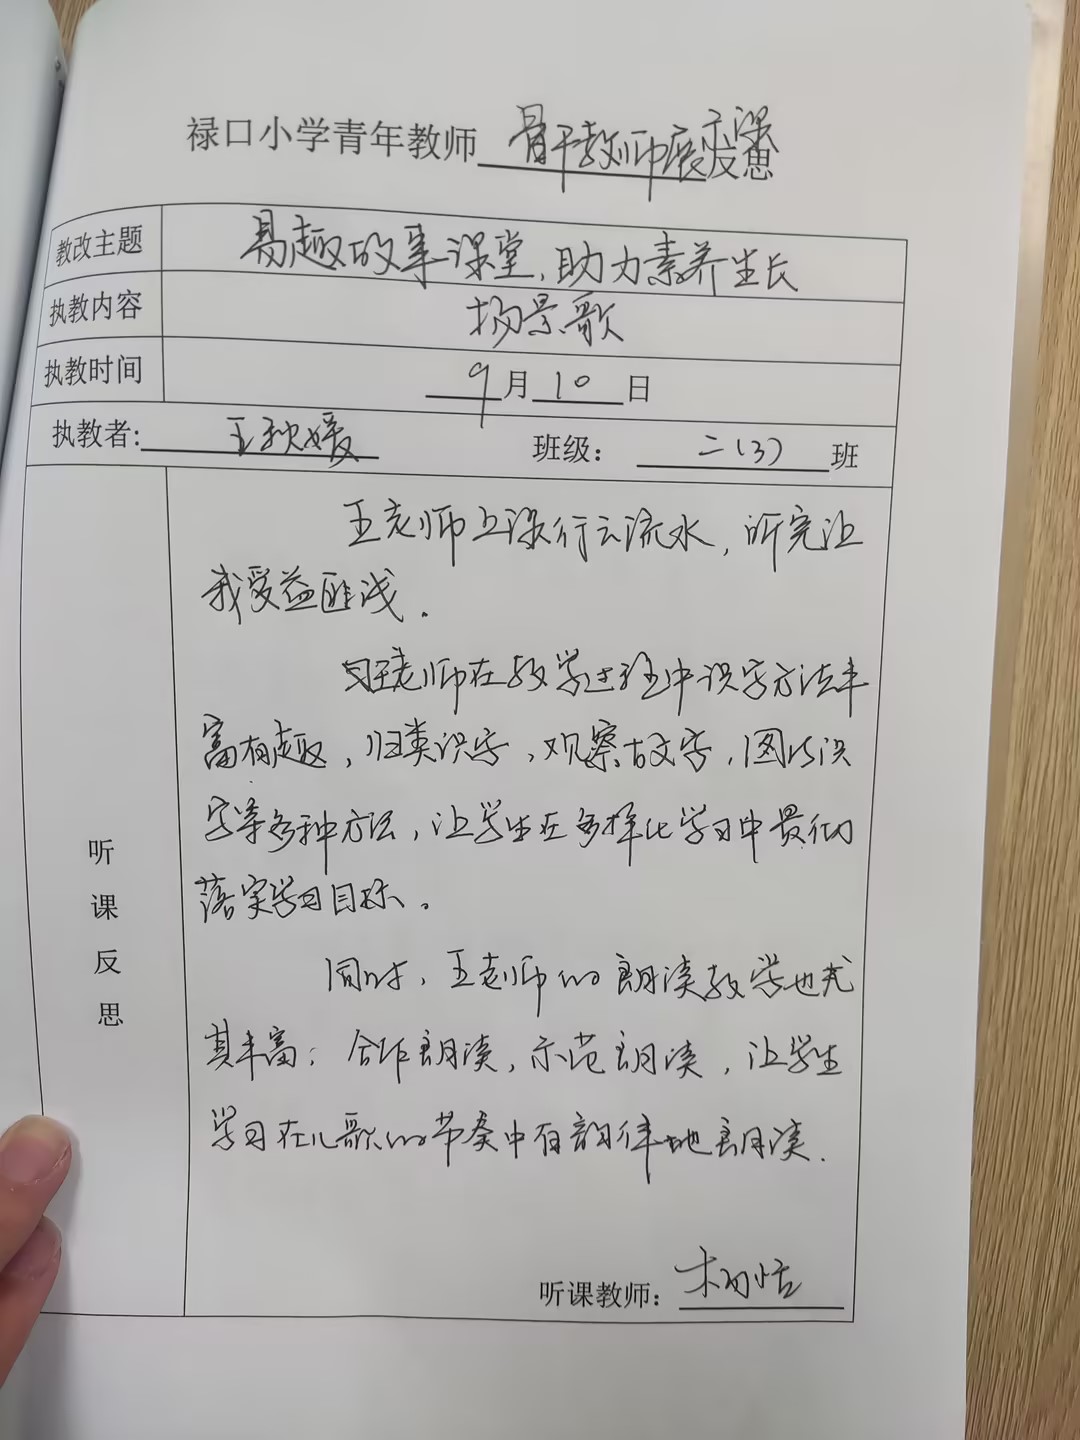 禄口小学青年教师骨干教师展示课反思
教改主题 易趣故事课堂，助力素养生长
执教内容 场景歌
执教时间 9月10日
执教者: 王秋媛 班级: 二（3）班
听课反思
王老师上课行云流水，听完让
我受益匪浅.
王老师在教学过程中识字方法丰
富有趣，归类识字，观察古文字，图片识
字等多种方法，让学生在多样化学习中最
落实学习目标。
同时，王老师的朗读教学也尤
其丰富：合作朗读，示范朗读，让学生
学习在儿歌的节奏中有韵律地朗读.
听课教师: